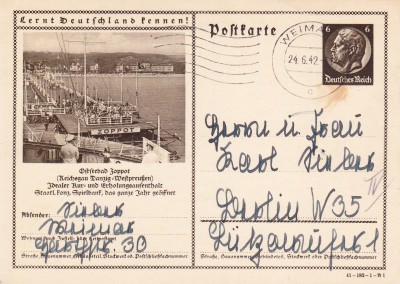 Lernt Deutschland kennen!
Postkarte
WEIMAR
24.6.42
c
6 6
Deutsches Reich
ZOPPOT
Ostseebad Zoppot
(Reichsgau Danzig-Westpreußen)
Idealer Kur- und Erholungsaufenthalt
Staatl. konz. Spielbank, das ganze Jahr geöffnet
Absender:
Weimar
30
Straße, Hausnummer, Gebäudeteil, Stockwerk od. Postschließfachnummer
Herrn u. Frau
Karl
Berlin W35
Lützowufer 1
Straße, Hausnummer, Gebäudeteil, Stockwerk od. Postschließfachnummer